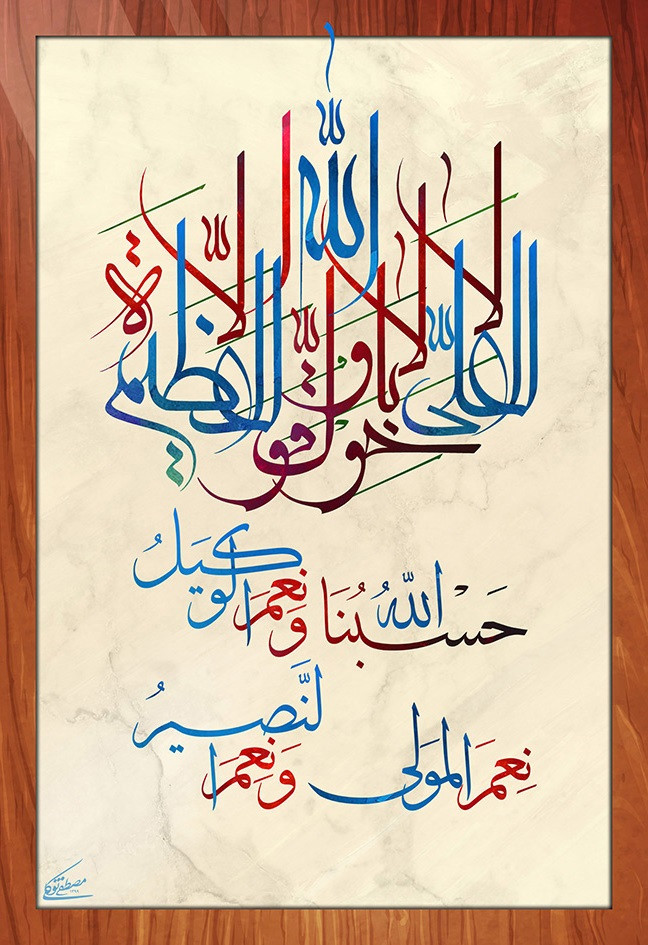 لا حول ولا قوة الا بالله العلی العظیم
حَسْبُنَا اللّٰهُ وَنِعمَ الوَکیلُ
نِعمَ المَولی وَنِعمَ النَّصیرُ